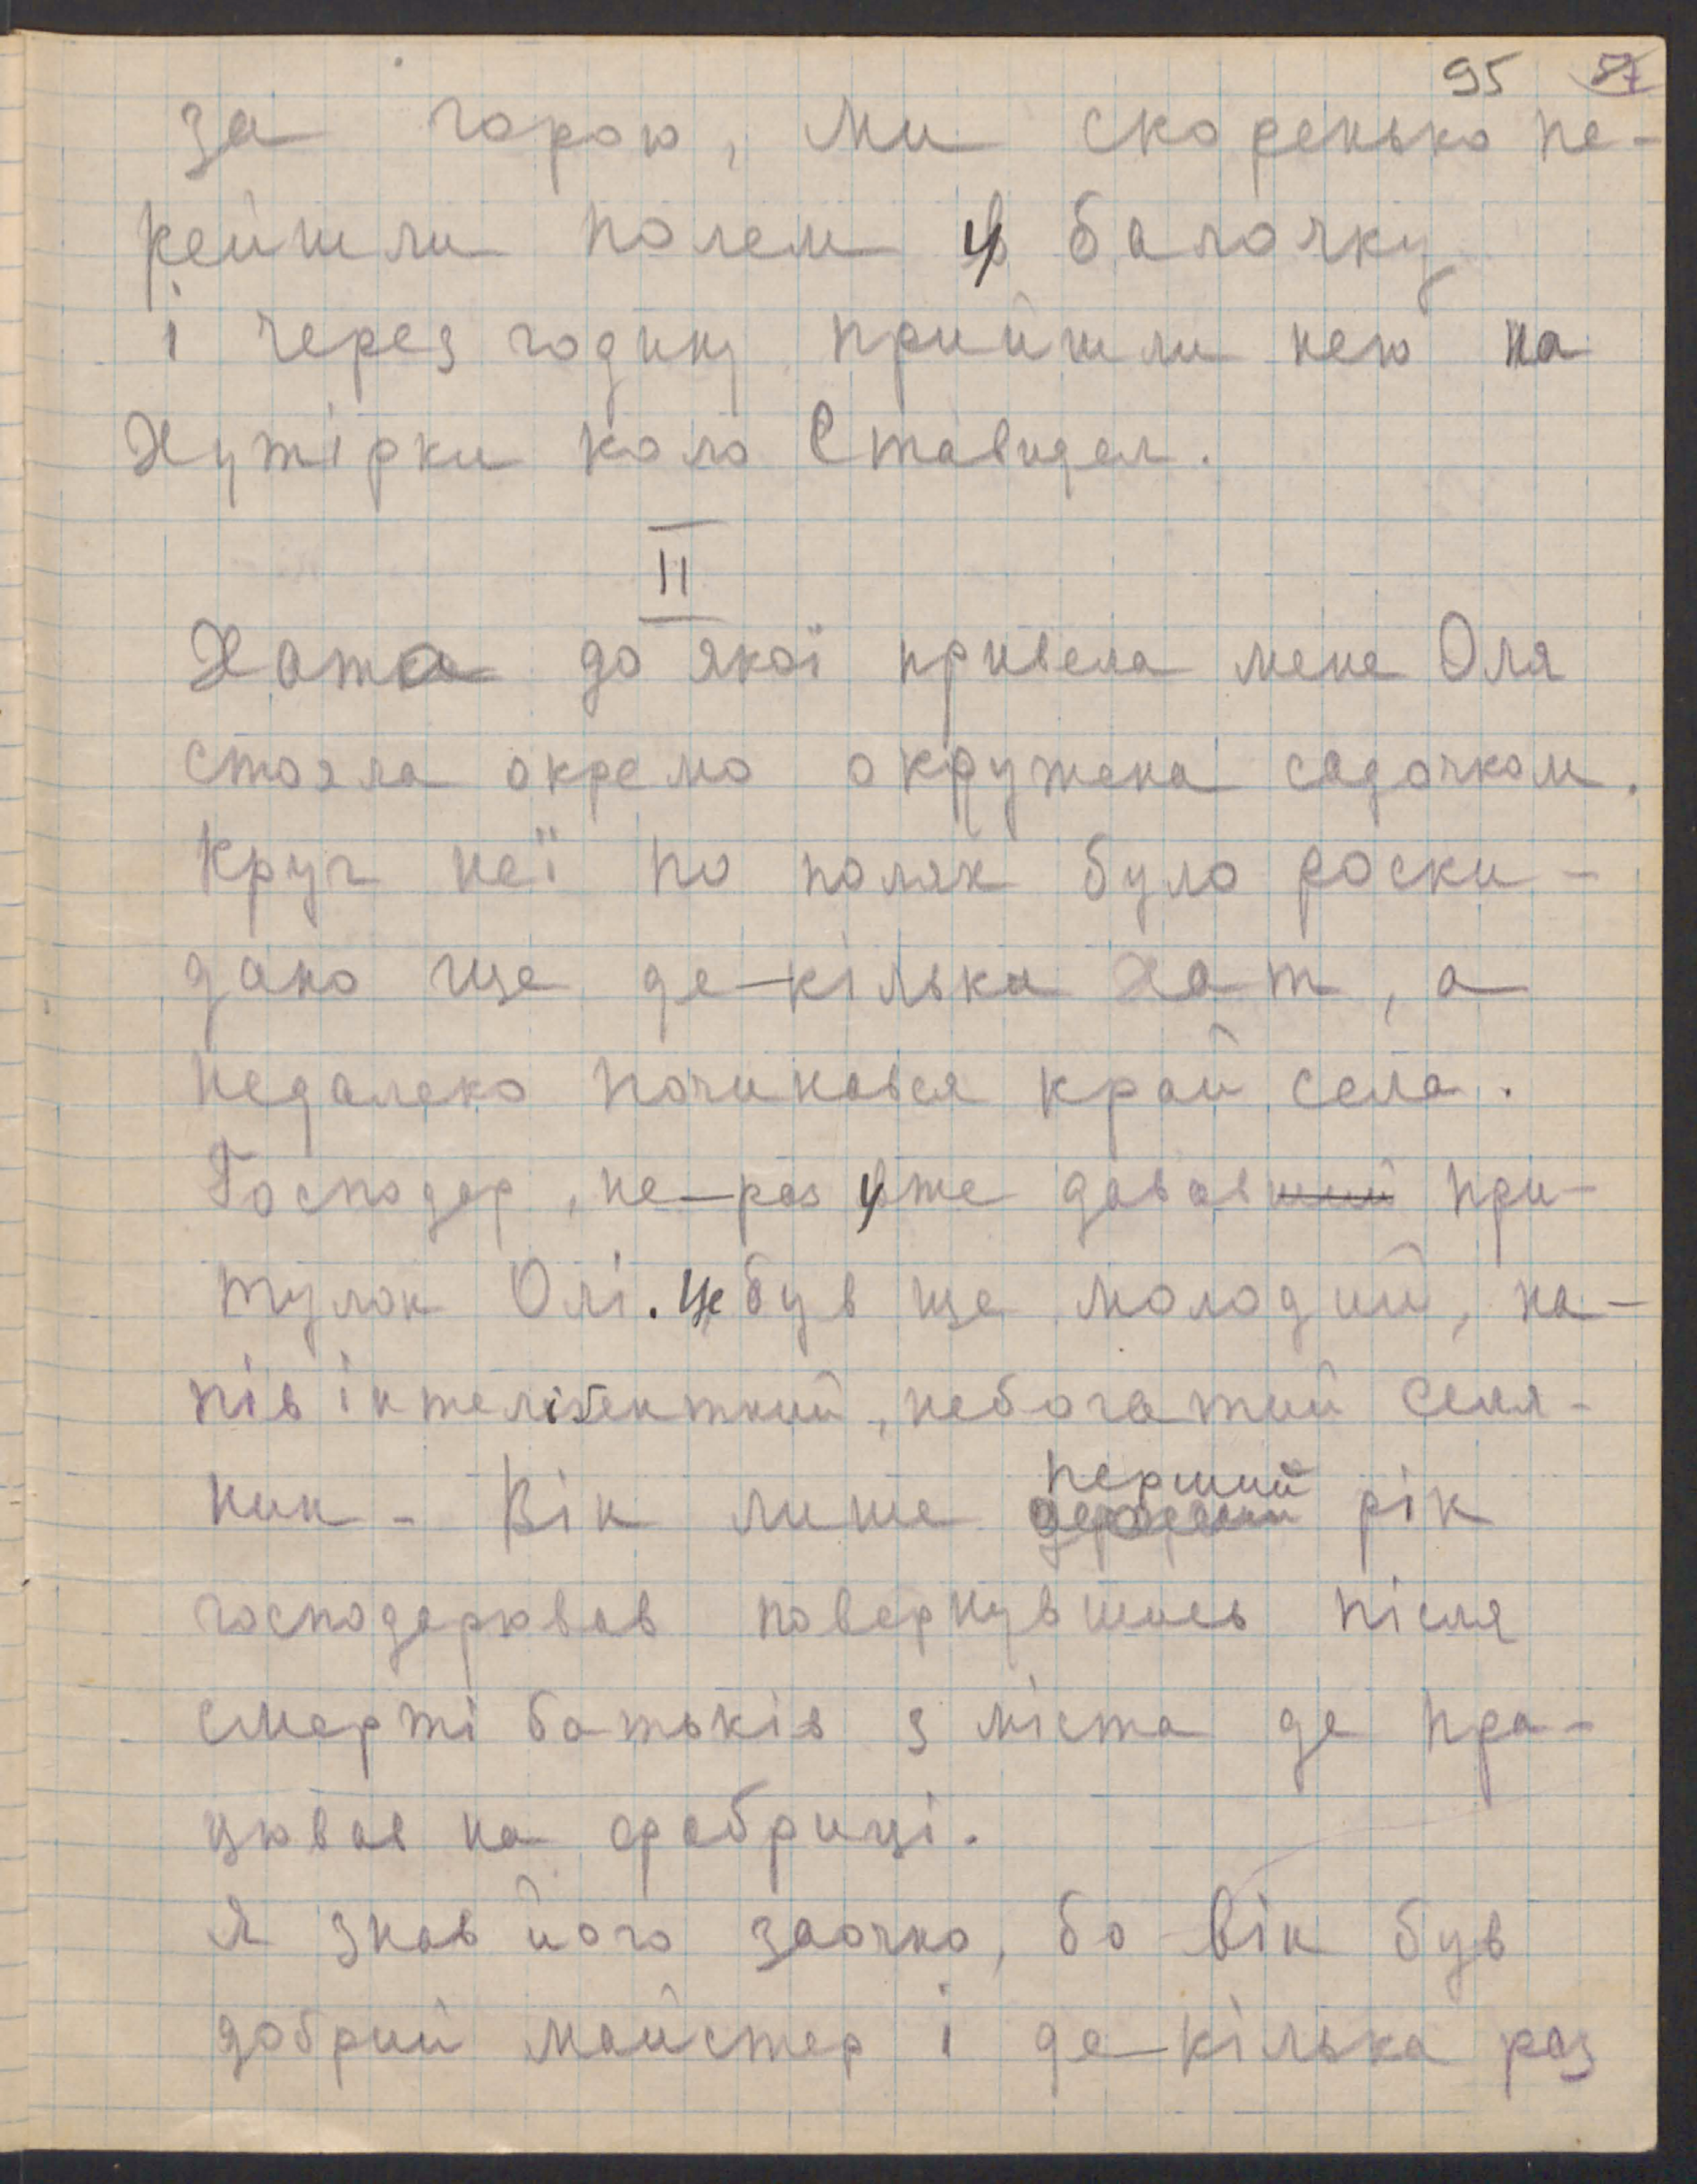 95 57
За горою, ми скоренько пе-
рейшли полем у балочку
і через годину прийшли нею на
Хутірки коло Ставидел.
II
Хата до якої привела мене Оля
стояла окремо окружена садочком.
Круг неї по полях було роски-
дано ще де-кілька хат, а
недалеко починався край села.
Господар, не-раз уже дававший при-
тулок Олі. Це був ще молодий, на-
пів інтелігентний, небогатий селя-
нин - Він лише перший рік
господарював повернувшись після
смерті батьків з міста де пра-
цював на фабриці.
Я знав його заочно, бо він був
добрий майстер і де-кілька раз